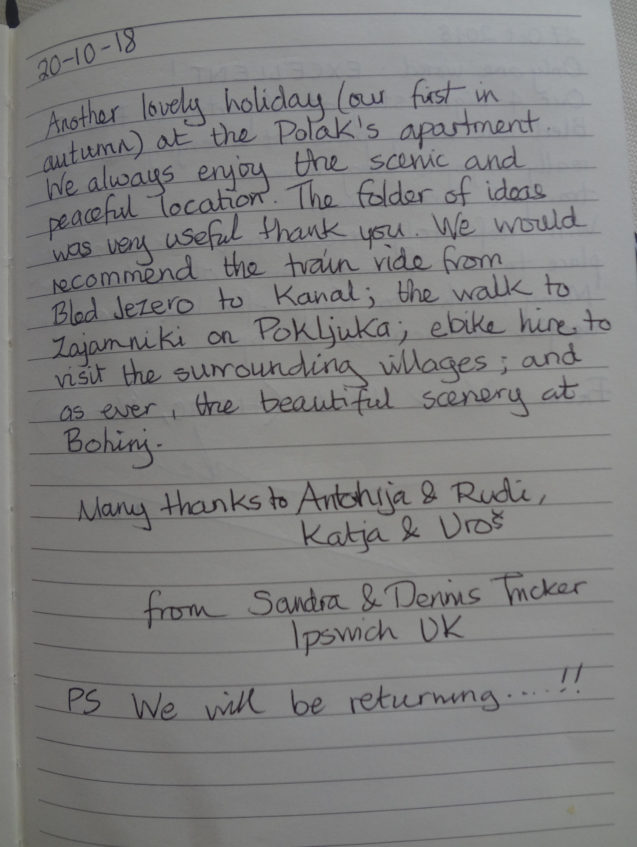 20-10-18
Another lovely holiday (our first in
autumn) at the Polak's apartment.
We always enjoy the scenic and
peaceful location. The folder of ideas
was very useful thank you. We would
recommend the train ride from
Bled Jezero to Kanal; the walk to
Zajamniki on Pokljuka; ebike hire, to
visit the surrounding villages; and
as ever, the beautiful scenery at
Bohinj.
Many thanks to & Rudi,
Katja & Uroš
from Sandra & Dennis
Ipswich UK
PS We will be returning....!!